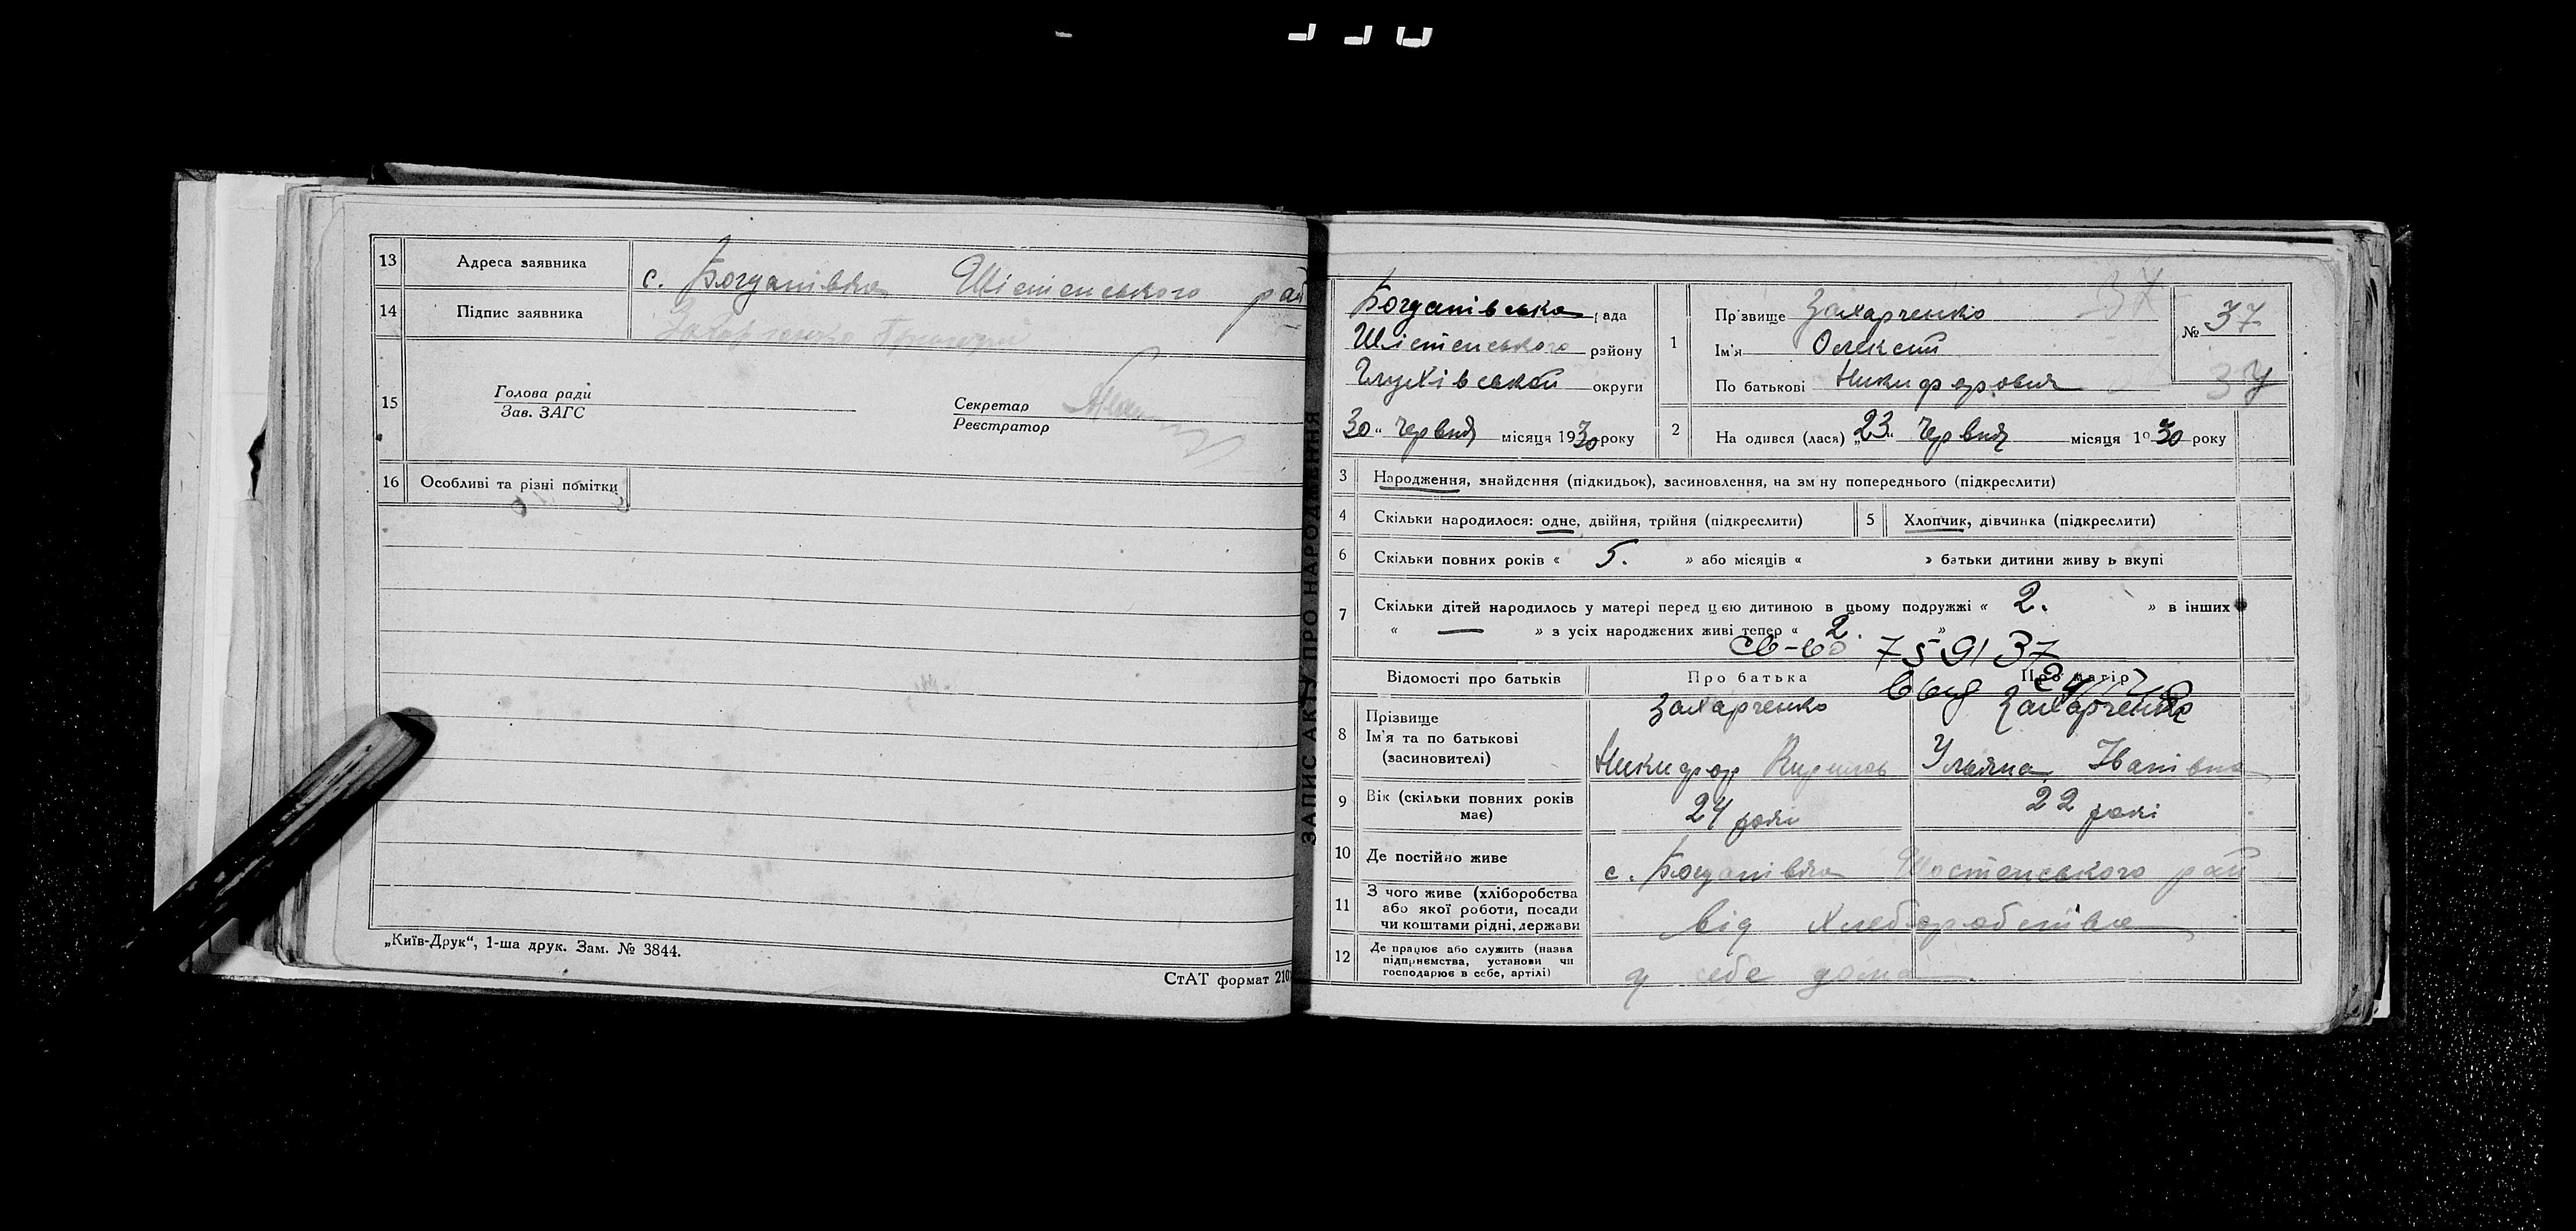 13 Адреса заявника с. Богданівка Шістенського рай
14 Підпис заявника Захарченко
15 Голова ради Зав. ЗАГС Секретар Реєстратор
16 Особливі та різні помітки
„Київ-Друк“, 1-ша друк. Зам. № 3844.
СтАТ формат 210
ЗАПИС АКТУ ПРО НАРОДЖЕННЯ
Богданівська рада
Шістенського району
Глухівської округи
30 „ Червня місяця 1930 року
1 Прізвище Захарченко
Ім'я Олексій
По батькові Никифорович
№ 37
37
37
2 На одився (лася) „23“ Червня місяця 1930 року
3 Народження, знайдення (підкидьок), засиновлення, на зміну попереднього (підкреслити)
4 Скільки народилося: одне, двійня, трійня (підкреслити) 5 Хлопчик, дівчинка (підкреслити)
6 Скільки повних років « 5. » або місяців « » батьки дитини живуть вкупі
7 Скільки дітей народилось у матері перед цією дитиною в цьому подружжі « 2. » в інших
« — » з усіх народжених живі тепер « 2. »
св-во 759137
Відомості про батьків Про батька Про матір
8 Прізвище
Ім'я та по батькові
(засиновителі)
Захарченко
Никифор Кирилов
Захарченко
Ульяна Іванівна
9 Вік (скільки повних років має) 24 роки 22 рокі
10 Де постійно живе с. Богданівка Шостенського рай
11 З чого живе (хліборобства або якої роботи, посади чи коштами рідні, держави від хлеборобства
12 Де працює або служить (назва підприємства, установи чи господарює в себе, артілі) у себе дома